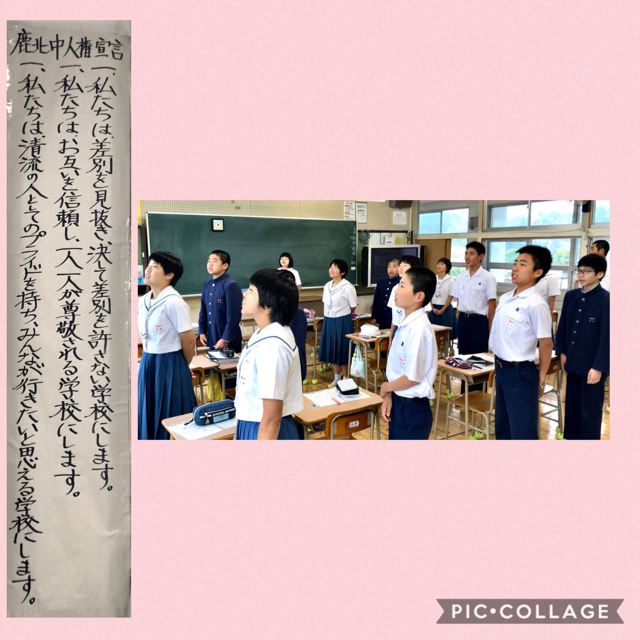 鹿北中人権宣言
一、私たちは、差別を見抜き、決して差別を許さない学校にします。
一、私たちは、お互いを信頼し、一人一人が尊敬される学校にします。
一、私たちは、清流の人としてのプライドを持ち、みんなが行きたいと思える学校にします。
PIC•COLLAGE